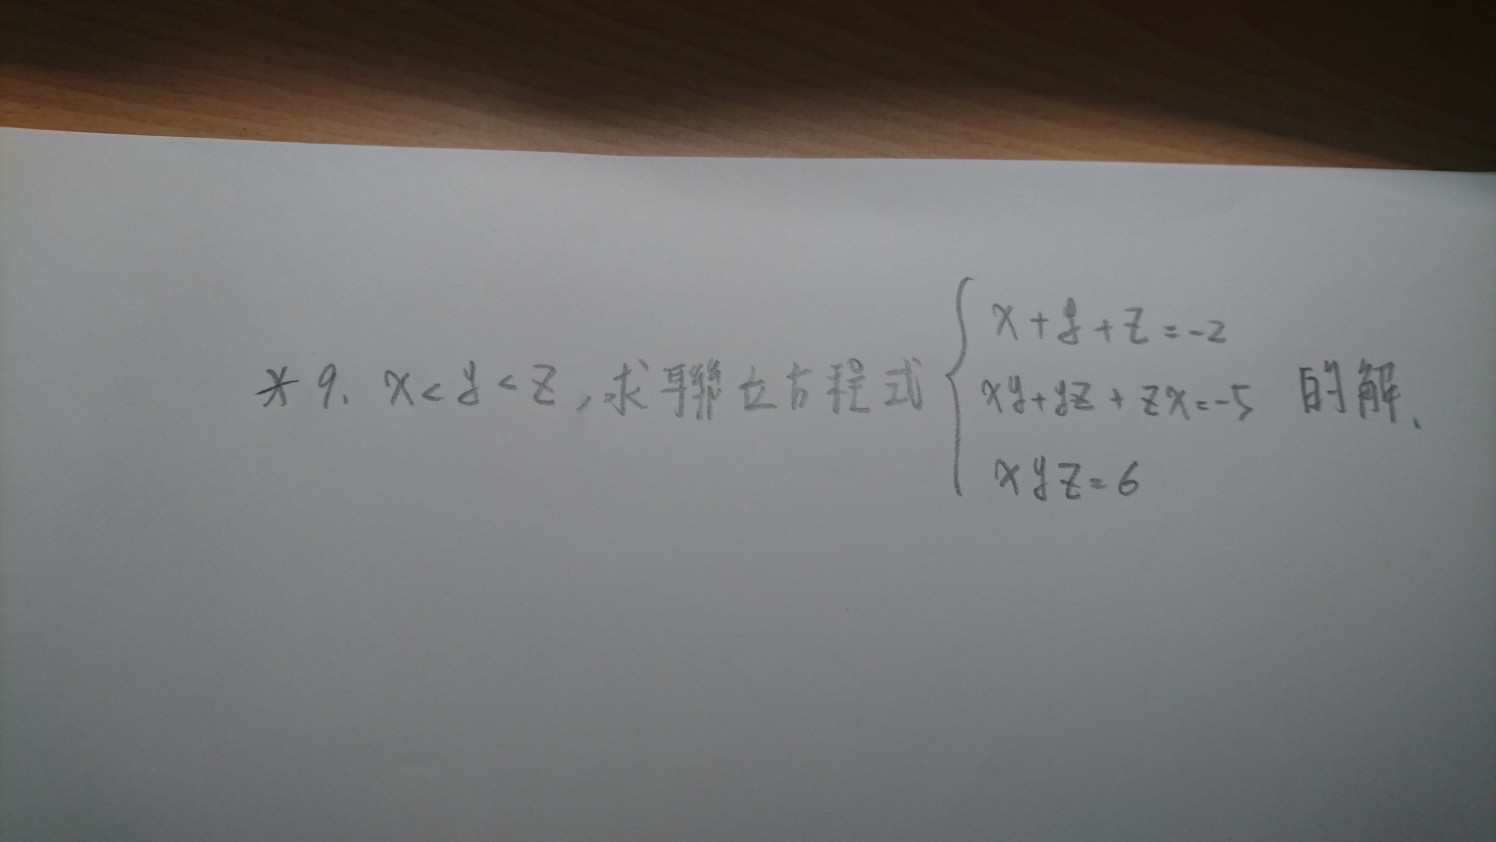 *9. x<y<z,求聯立方程式
x+y+z=-2
xy+yz+zx=-5
xyz=6
的解、